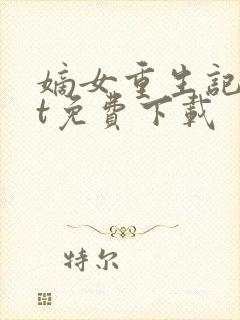 嫡女重生記
t免費下載
特尔